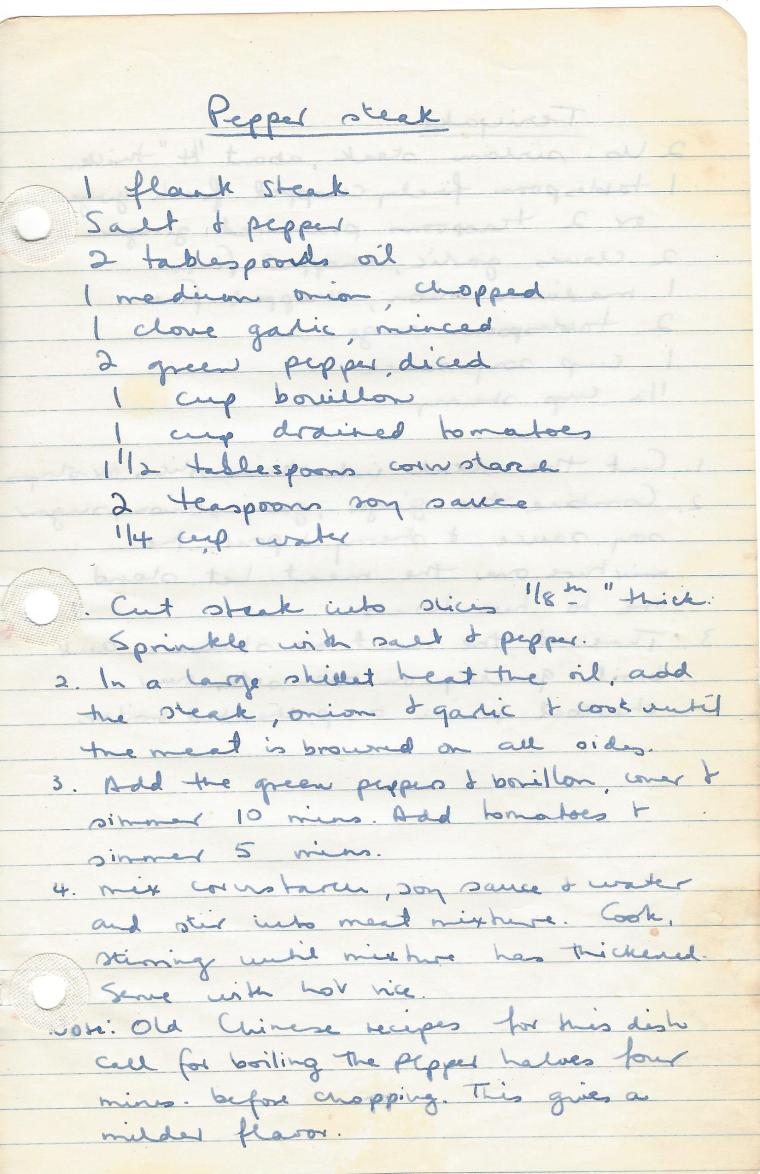 Pepper steak
1 flank steak
Salt & pepper
2 tablespoons oil
1 medium onion, chopped
1 clove garlic, minced
2 green pepper, diced
1 cup bouillon
1 cup drained tomatoes
1 1/2 tablespoons cornstarch
2 teaspoons soy sauce
1/4 cup water
. Cut steak into slices 1/8th " thick.
Sprinkle with salt & pepper.
2. In a large skillet heat the oil, add
the steak, onion & garlic & cook until
the meat is browned on all sides.
3. Add the green peppers & bouillon, cover &
simmer 10 mins. Add tomatoes &
simmer 5 mins.
4. mix cornstarch, soy sauce & water
and stir into meat mixture. Cook,
stirring until mixture has thickened.
Serve with hot rice.
Note: Old Chinese recipes for this dish
call for boiling the pepper halves four
mins. before chopping. This gives a
milder flavor.